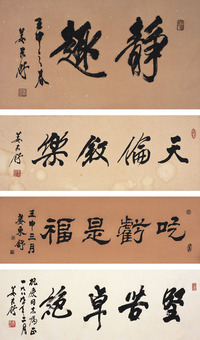 靜趣
壬申之春
姜東舒
天倫敘樂
姜東舒
吃虧是福
壬申三月
姜東舒
堅苦卓絕
同志
一九八
姜東舒